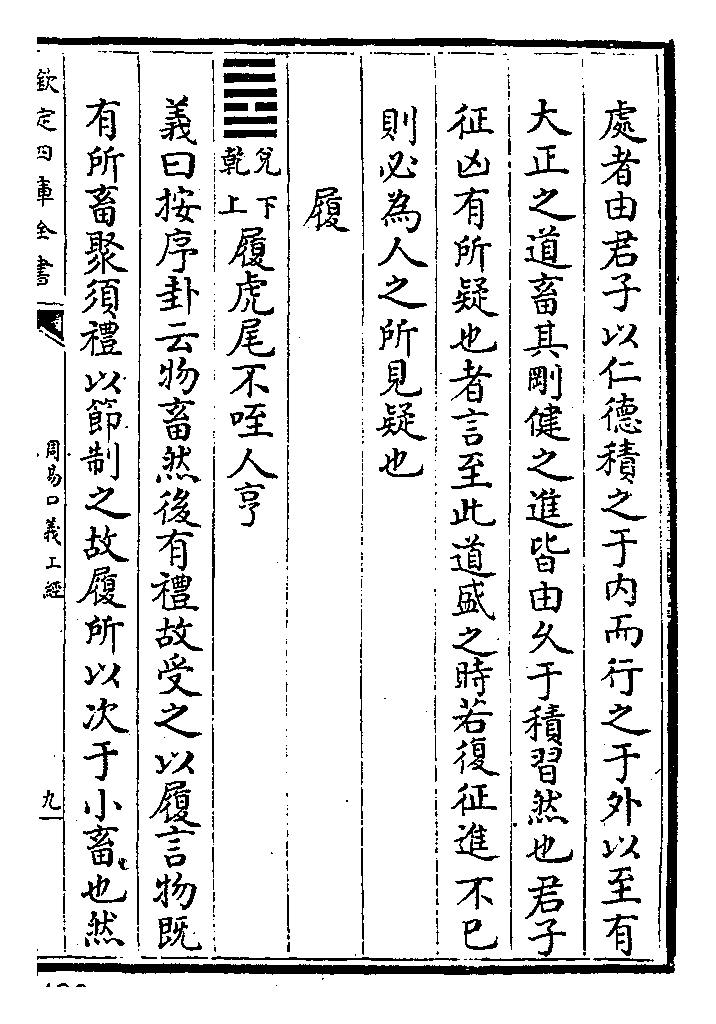 處者由君子以仁德積之于内而行之于外以至有
大正之道畜其剛健之進皆由久于積習然也君子
征凶有所疑也者言至此道盛之時若復征進不已
則必為人之所見疑也
履
兌下
乾上
履虎尾不咥人亨
義曰按序卦云物畜然後有禮故受之以履言物既
有所畜聚須禮以節制之故履所以次于小畜也然
欽定四庫全書
周易口義上經
九